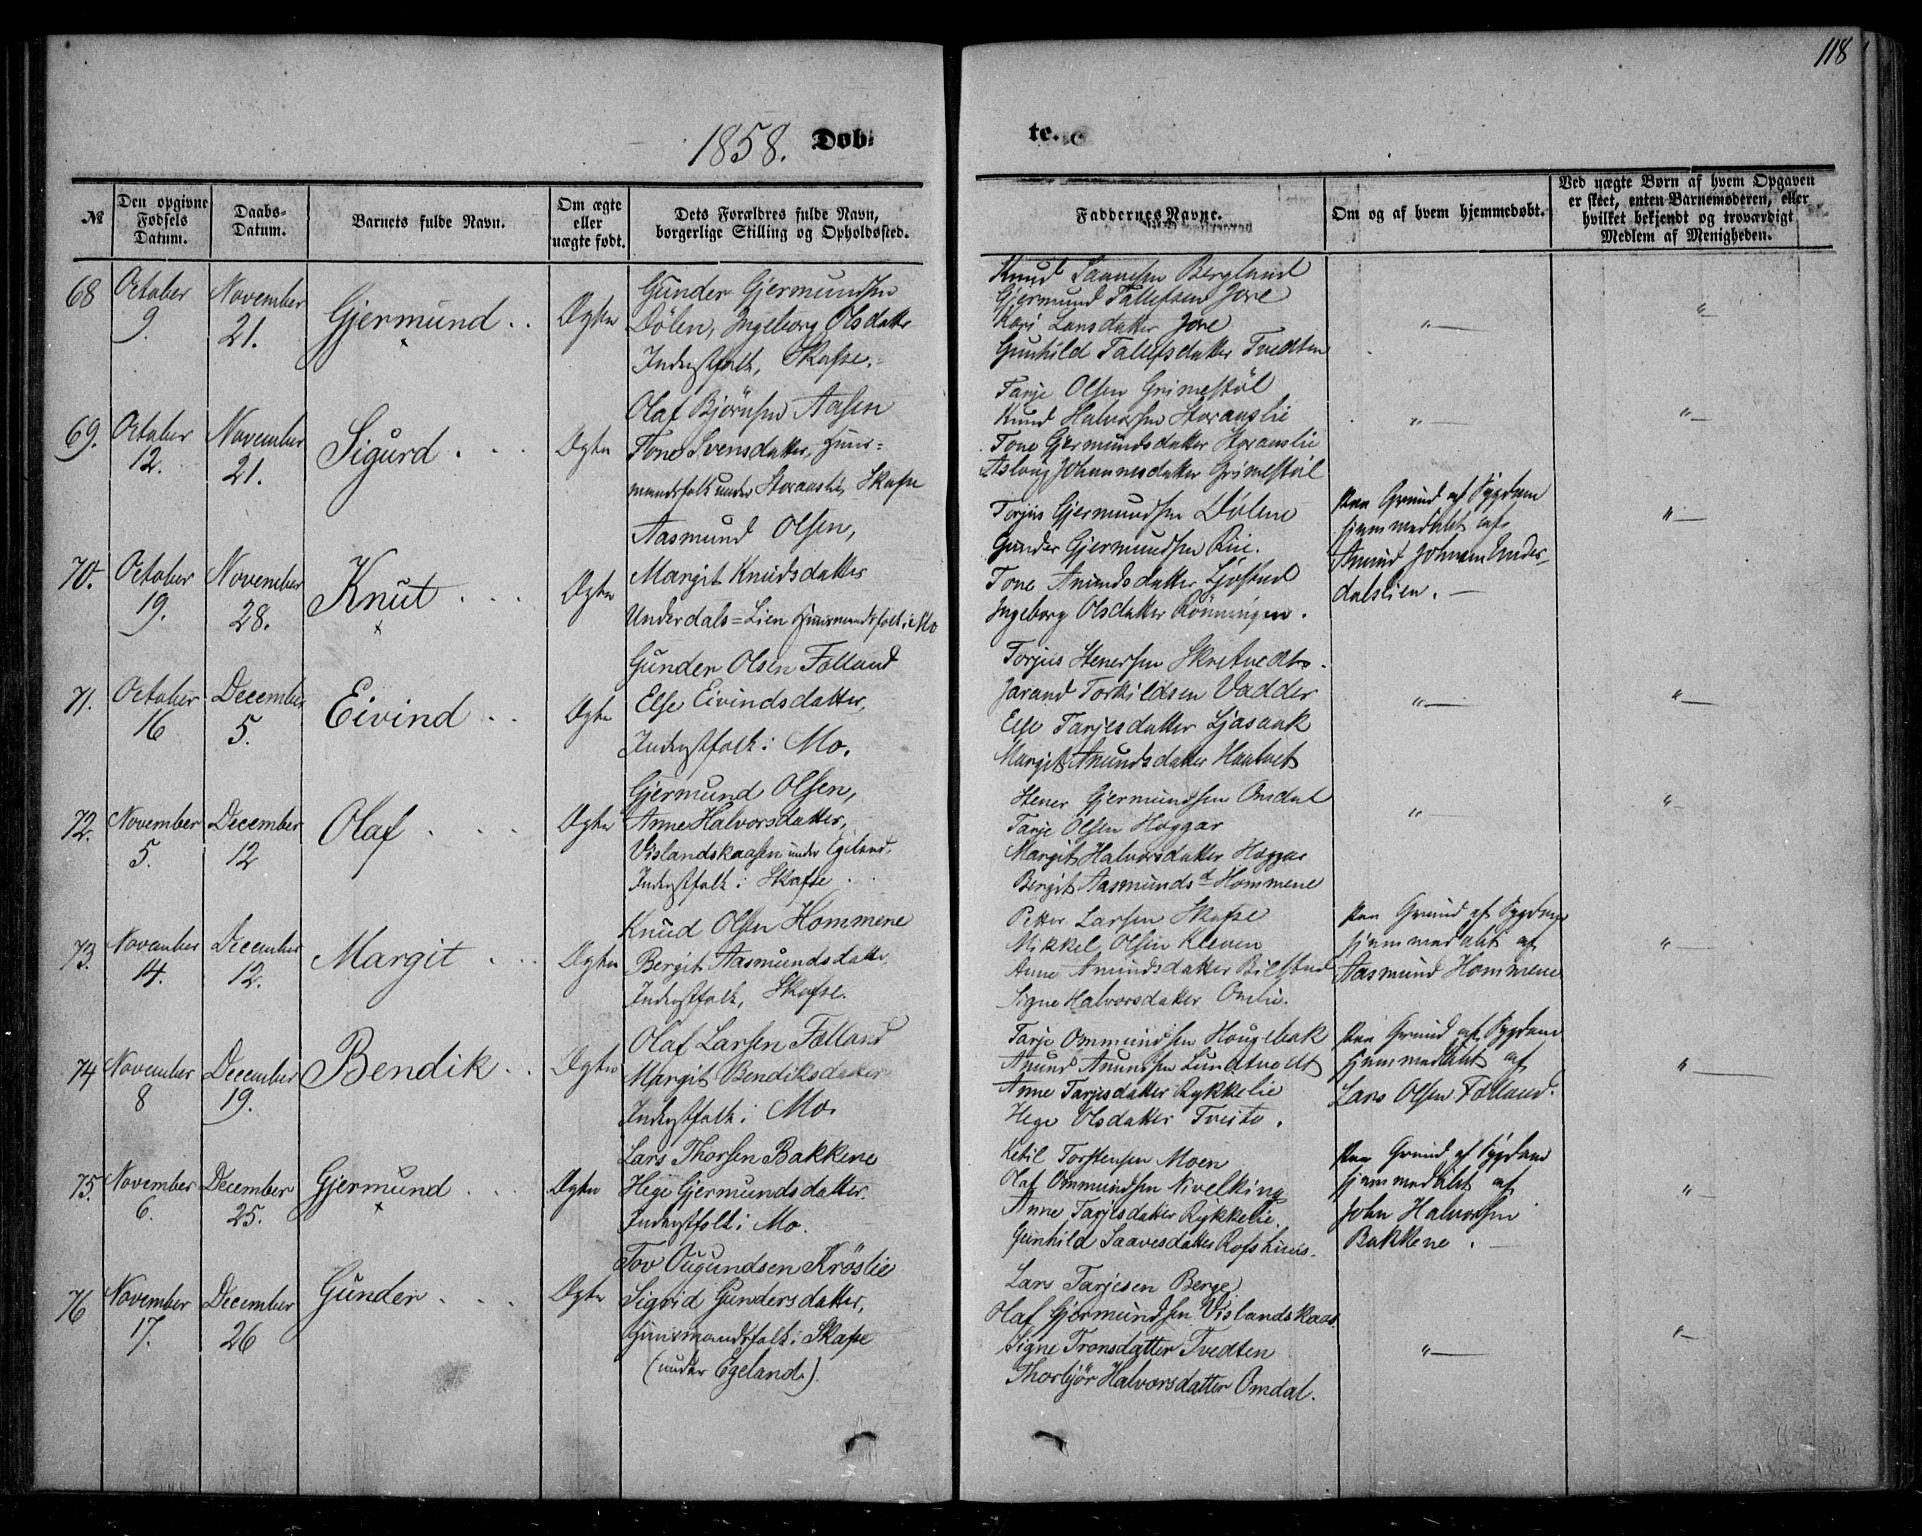 118
1858. Døbte.
№
Den opgivne Fødsels Datum.
Daabs-Datum.
Barnets fulde Navn.
Om ægte eller uægte født.
Dets Forældres fulde Navn, borgerlige Stilling og Opholdssted.
Faddernes Navne.
Om og af hvem hjemmedøbt.
Ved uægte Børn af hvem Opgaven er skeet, enten Barnemoderen, eller hvilket bekjendt og troværdigt Medlem af Menigheden.
68 October 9. November 21. Gjermund Ægte
Gunder Gjermundsen
Dølen, Ingeborg Olsdatter
Inderstfolk, Skafse.
Knud Saavesen Bergland
Gjermund Tallefsen Jore
Kari Larsdatter Jore
Gunhild Tallefsdatter Tvedten
"— "—
69. October 12. November 21. Sigurd Ægte
Olaf Bjørnsen Aasen
Tone Svensdatter, Huus=
mandsfolk under Storaaslie, Skafse
Tarje Olsen Grimestøl
Knud Halvorsen Storaaslie
Tone Gjermundsdatter Storaaslie
Aslaug Johannesdatter Grimestøl
"— "—
70. October 19. November 28. Knut Ægte
Aasmund Olsen,
Margit Knudsdatter
Underdals=Lien Huusmandsfolk i Mo
Torjus Gjermundsen Dølene
Gunder Gjermundsen
Tone Anundsdatter
Ingeborg Olsdatter Rønningen.
Paa Grund af Sygdom
hjemmedøbt af
Anund Johnsen Under-
dalslien. —
"—
71. October 16 December 5. Eivind Ægte
Gunder Olsen Følland
Else Eivindsdatter,
Inderstfolk i Mo.
Torjus Stenersen Skretvedt
Jarand Torkildsen Vadder
Else Tarjesdatter Ljosaak
Margit Anundsdatter Haatvet
"— "—
72. November 5. December 12 Olaf Ægte
Gjermund Olsen,
Anne Halvorsdatter,
Vislandskaasen under Egeland,
Inderstfolk i Skafse
Stener Gjermundsen Omdal
Tarje Olsen Høggar
Margit Halvorsdatter Høggar
Bergit Aasmundsd Hommene
" "—
73. November 14. December 12. Margit Ægte
Knud Olsen Hommene
Bergit Aasmundsdatter
Inderstfolk, Skafse.
Petter Larsen Skafse
Mikkel Olsen Kleven
Anne Amundsdatter
Signe Halvorsdatter Omlie.
Paa Grund af Sygdom
hjemmedøbt af
Aasmund Hommene
"—
74 November 8 December 19. Bendik Ægte
Olaf Larsen Følland
Margit Bendiksdatter
Inderstfolk i Mo.
Tarje Ommundsen Haugebak
Anund Anundsen Lundtvedt
Anne Tarjesdatter Rykkelie
Hege Olsdatter Tveito.
Paa Grund af Sygdom
hjemmedøbt af
Lars Olsen Følland.
"—
75. November 6. December 25. Gjermund Ægte
Lars Thorsen Bakkene
Hege Gjermundsdatter.
Inderstfolk i Mo.
Ketil Torstensen Moen
Olaf Ommundsen Nivelking
Anne Tarjesdatter Rykkelie.
Gunhild Saavesdatter Rofshuus.
Paa Grund af Sygdom
hjemmedøbt af
John Halvorsen
Bakkene. —
"—
76 November 17. December 26 Gunder Ægte
Tov Ougundsen Krøslie
Sigrid Gundersdatter,
Huusmandsfolk i Skafse
(under Egeland.)
Lars Tarjesen Berge
Olaf Gjermundsen Vislandskaas.
Signe Tronsdatter Tvedten
Thorbjør Halvorsdatter Omdal.
"— "—